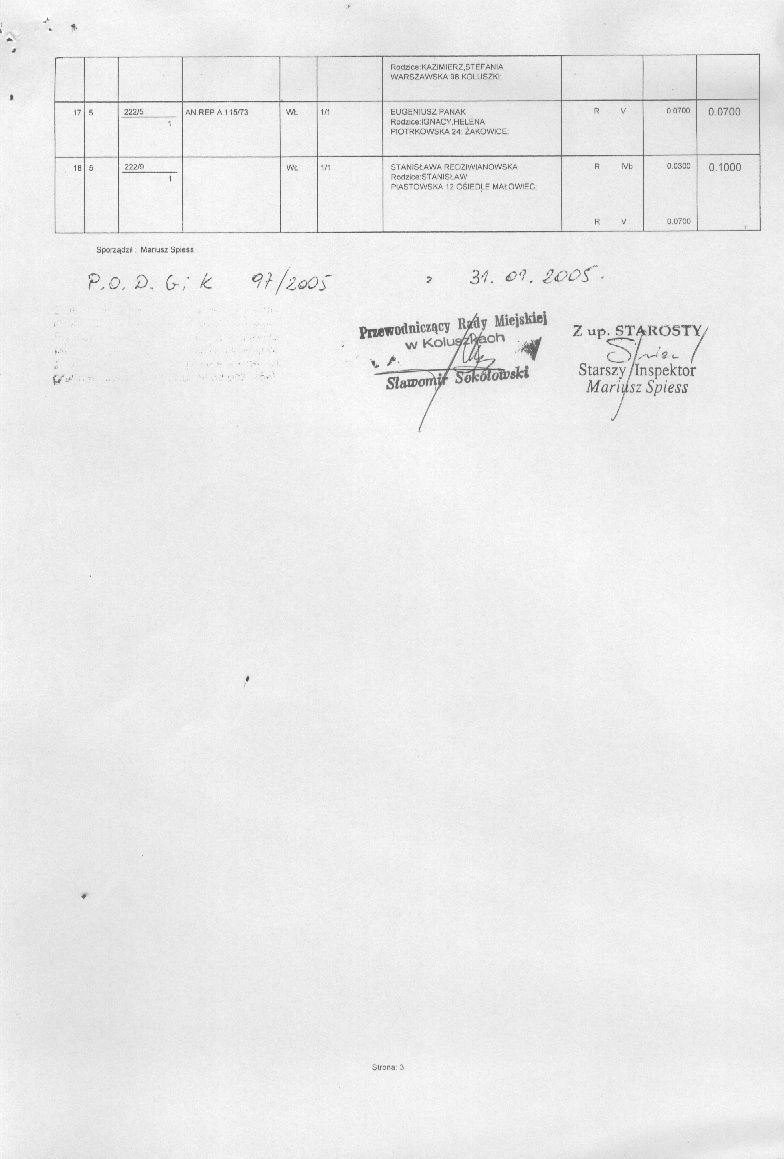 Rodzice:KAZIMIERZ,STEFANIA
WARSZAWSKA 98 KOLUSZKI;
17 5 222/5 AN.REP A 115/73 WŁ 1/1 EUGENIUSZ PANAK R V 0.0700 0.0700
1 Rodzice:IGNACY,HELENA
PIOTRKOWSKA 24; ŻAKOWICE;
18 5 222/9 WŁ 1/1 STANISŁAWA REDZIWIANOWSKA R IVb 0.0300 0.1000
1 Rodzice:STANISŁAW
PIASTOWSKA 12 OSIEDLE MAŁOWIEC;
R V 0.0700
Sporządził : Mariusz Spiess
P.O.D.G i K 97/2005 z 31.01.2005.
Przewodniczący Rady Miejskiej
w Koluszkach
Sławomir Sokołowski
Z up. STAROSTY
Starszy Inspektor
Mariusz Spiess
Strona: 3